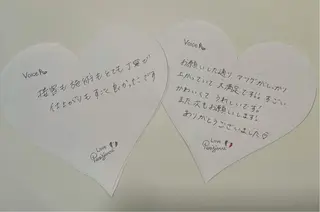 Voice
接客も施術もとても丁寧で
仕上がりもすごく良かったです
Love
Voice
お願いした通り、マツゲがしっかり
上がっていて大満足です。すごい
かわいくてうれしいです。
また次もお願いします。
ありがとうございました
Love